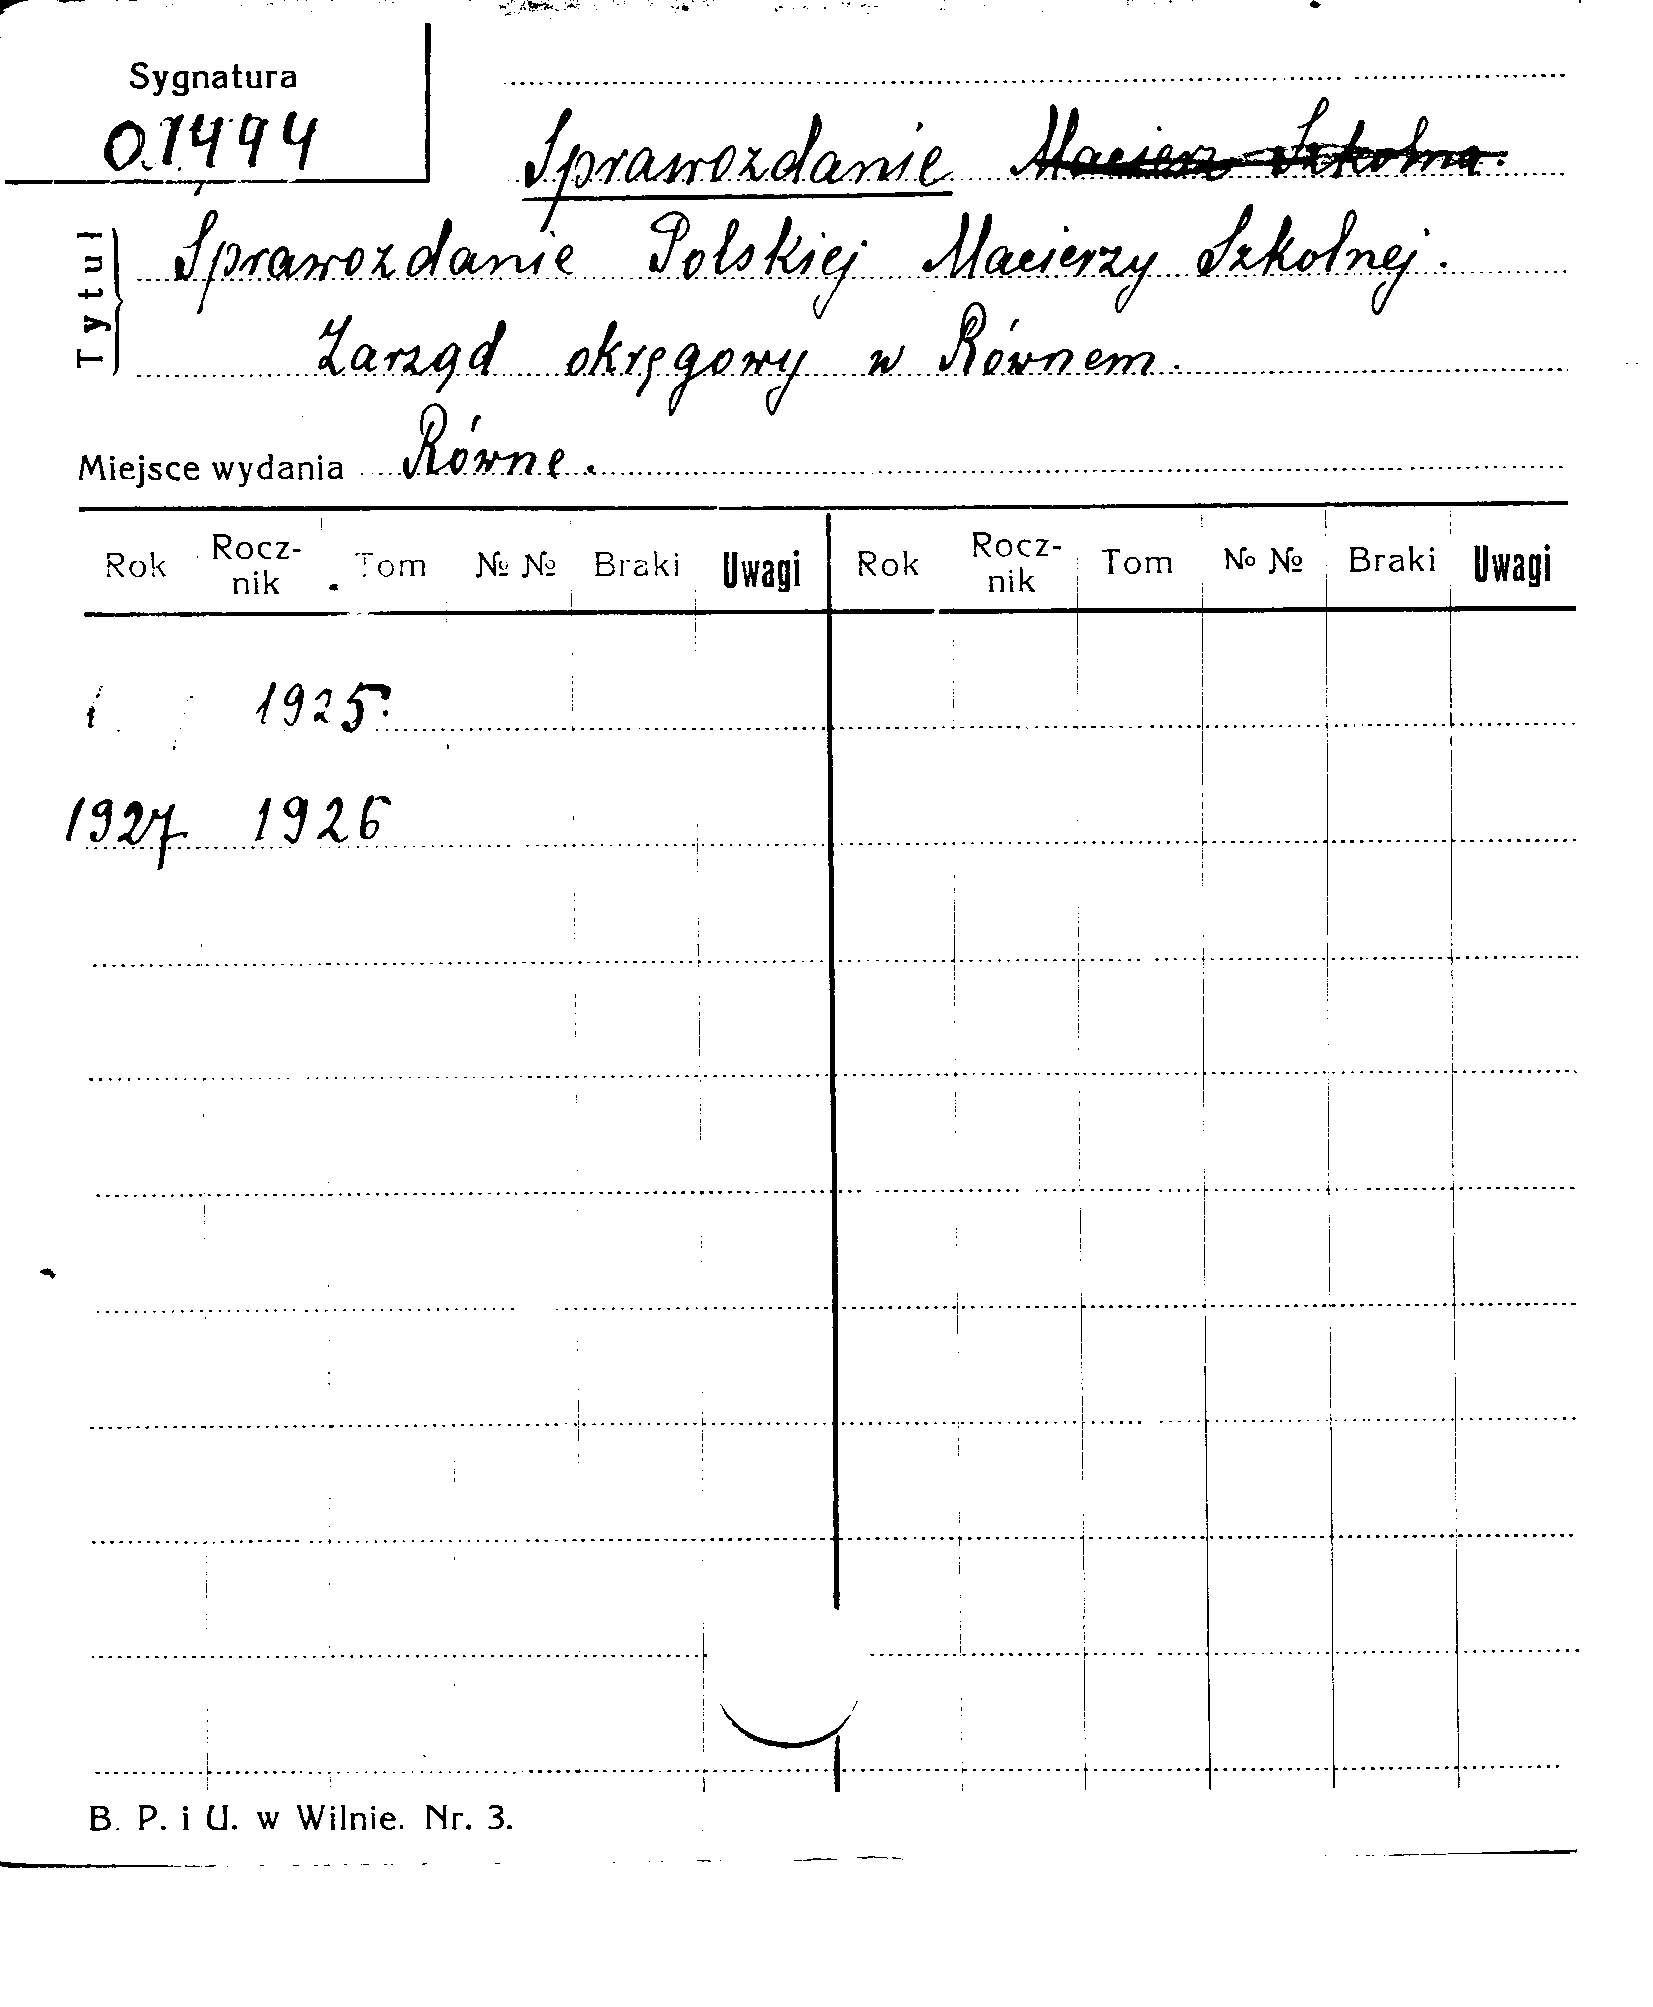 Sygnatura
01494
Sprawozdanie Macierz Szkolna.
Tytuł
Sprawozdanie Polskiej Macierzy Szkolnej.
Zarząd okręgowy w Równem.
Miejsce wydania Równe.
Rok Rocz-nik Tom №№ Braki Uwagi Rok Rocz-nik Tom №№ Braki Uwagi
1925.
1927 1926
B. P. i U. w Wilnie. Nr. 3.